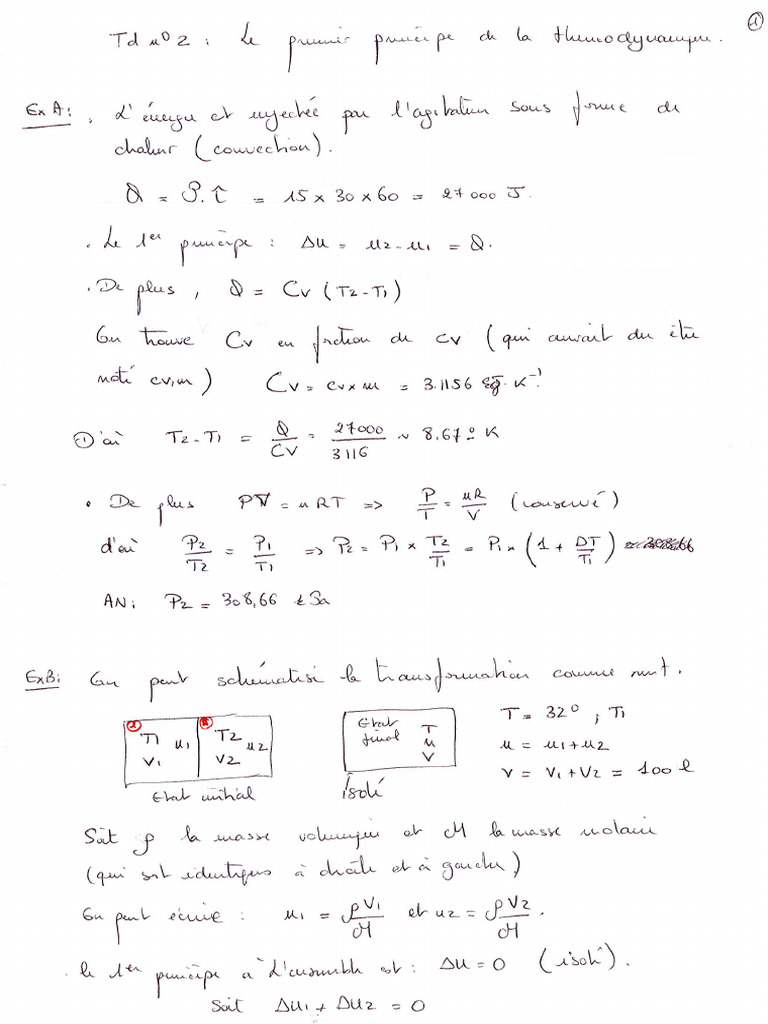 1
Td n° 2 : Le premier principe de la thermodynamique.
Ex A: . L'énergie et injectée par l'agitation sous forme de
chaleur (convection).
Q = P.τ = 15 x 30 x 60 = 27 000 J.
. Le 1er principe : Δu = u2 - u1 = Q.
. De plus, Q = Cv (T2 - T1)
On trouve Cv en fonction de cv (qui aurait du être
noté cv,m) Cv = cv x m = 3.1156 J. K-1.
D'où T2 - T1 = Q/CV = 27000/3116 ~ 8,67° K
. De plus PV = nRT => P/T = nR/V (conservé)
d'où P2/T2 = P1/T1 => P2 = P1 x T2/T1 = P1 x (1 + DT/T1)
AN: P2 = 308,66 kPa
Ex B: On peut schématisé la transformation comme suit.
1 T1 n1 V1
2 T2 n2 V2
Etat initial
Etat final T n V
isolé
T = 32° ; T1
n = n1 + n2
V = V1 + V2 = 100 l
Soit ρ la masse volumique et M la masse molaire
(qui sont identiques à droite et à gauche)
On peut écrire : n1 = ρV1/M et n2 = ρV2/M.
. le 1er principe à l'ensemble est : Δu = 0 (isolé).
Soit Δu1 + Δu2 = 0